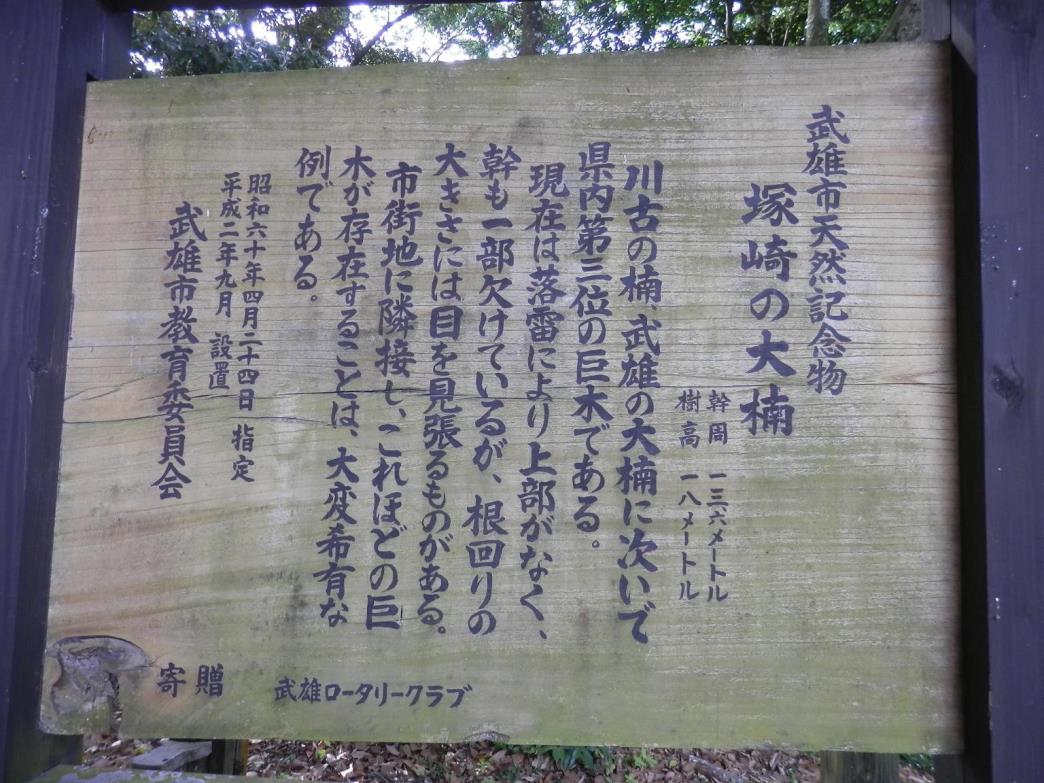 武雄市天然記念物
塚崎の大楠
幹周 一三六メートル
樹高 一八メートル
川古の楠、武雄の大楠に次いで
県内第三位の巨木である。
現在は落雷により上部がなく、
幹も一部欠けているが、根回りの
大きさには目を見張るものがある。
市街地に隣接し、これほどの巨
木が存在することは、大変希有な
例である。
昭和六十年四月二十四日 指定
平成二年九月 設置
武雄市教育委員会
寄贈 武雄ロータリークラブ